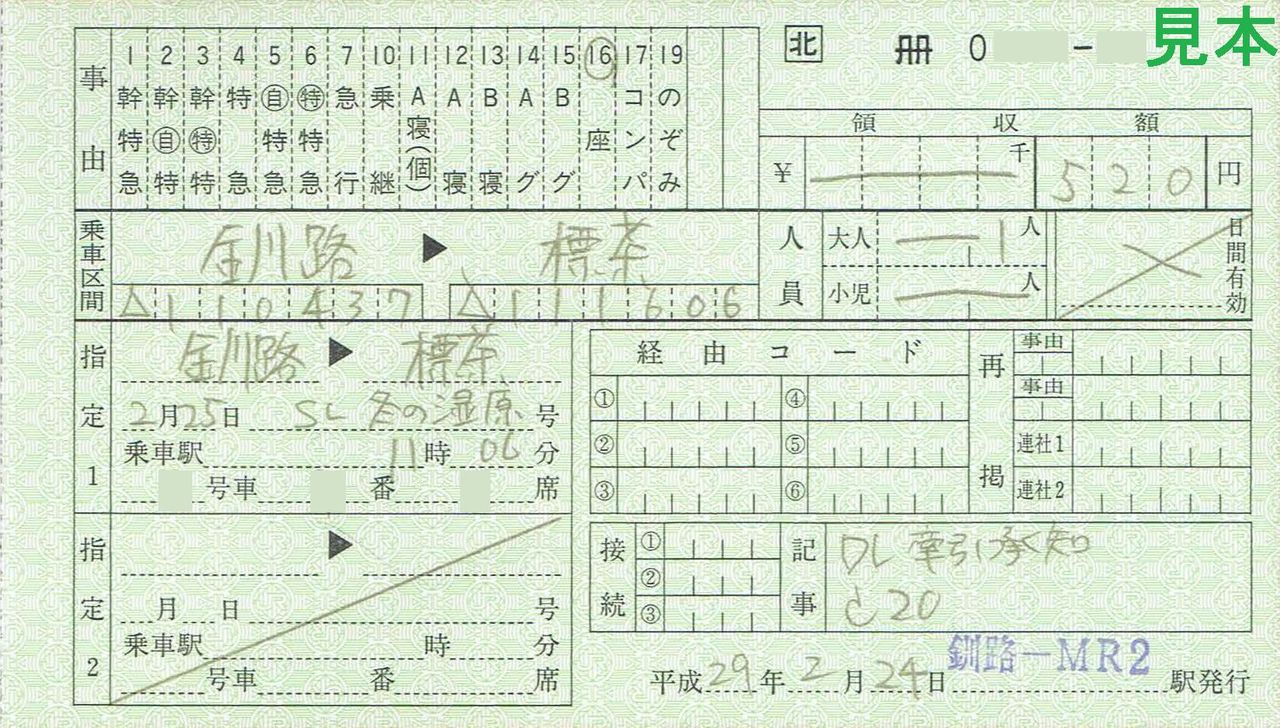 北 冊 0 - 見本
事由
1 幹特急
2 幹自特
3 幹特特
4 特急
5 自特急
6 特特急
7 急行
10 乗継
11 A寝(個)
12 A寝
13 B寝
14 Aグ
15 Bグ
16 座
17 コンパ
19 のぞみ
領収額
¥ 千 520 円
乗車区間
釧路 ▶ 標茶
△110437 △111606
人員
大人 1 人
小児 人
日間有効
指定1
釧路 ▶ 標茶
2月25日 SL 冬の湿原 号
乗車駅 11時06分
号車 番 席
指定2
▶
月 日 号
乗車駅 時 分
号車 番 席
経由コード
① ④
② ⑤
③ ⑥
再掲
事由
事由
連社1
連社2
接続
①
②
③
記事
DL 牽引承知
C20
平成29年2月24日 釧路-MR2 駅発行